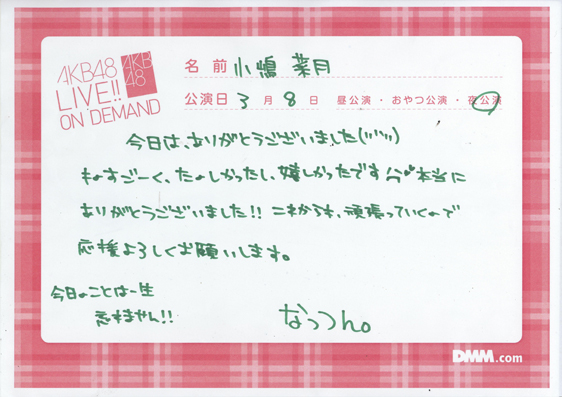 AKB48
LIVE!!
ON DEMAND
AKB
48
名前 小嶋 菜月
公演日 3月8日 昼公演・おやつ公演・夜公演
今日は、ありがとうございました(''''')
ものすごーく、たのしかったし、嬉しかったです 本当に
ありがとうございました!! これからも、頑張っていくので
応援よろしくお願いします。
今日のことは一生
忘れません!!
なっつん。
DMM.com